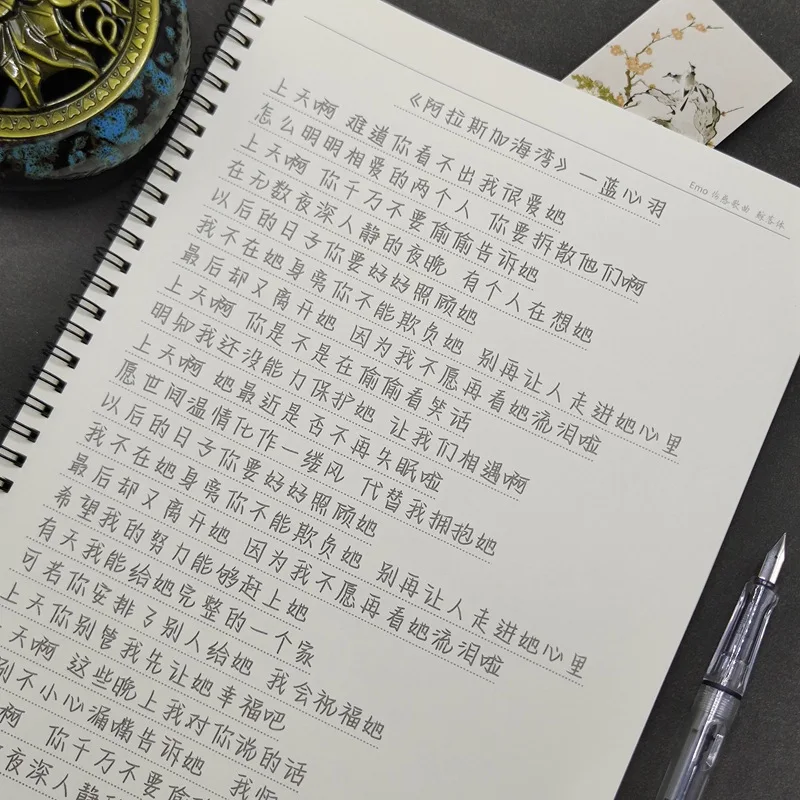 Emo 伤感歌曲
《阿拉斯加海湾》—蓝心羽
上天啊 难道你看不出我很爱她
怎么明明相爱的两个人 你要拆散他们啊
上天啊 你千万不要偷偷告诉她
在无数夜深人静的夜晚 有个人在想她
以后的日子你要好好照顾她
我不在她身旁你不能欺负她 别再让人走进她心里
最后却又离开她 因为我不愿再看她流泪啦
上天啊 你是不是在偷偷看笑话
明知我还没能力保护她 让我们相遇啊
上天啊 她最近是否不再失眠啦
愿世间温情化作一缕风 代替我拥抱她
以后的日子你要好好照顾她
我不在她身旁你不能欺负她 别再让人走进她心里
最后却又离开她 因为我不愿再看她流泪啦
希望我的努力能够赶上她
有天我能给她完整的一个家
可若你安排了别人给她 我会祝福她
上天你别管我先让她幸福吧
天啊 这些晚上我对你说的话
别不小心漏嘴告诉她 我怕
啊 你千万不要偷偷
夜深人静